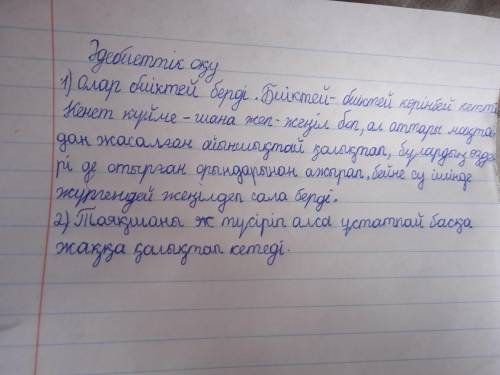 Әдебиеттік оқу
1) Олар биіктей берді. Биіктей-биіктей көрінбей кетті.
Кенет күйме-шана жеп-жеңіл боп, ал аттары мақта-
дан жасалған ойыншықтай қалықтап, бұлардың өзде-
рі де отырған орындарынан ажырап, бейне су ішінде
жүргендей жеңілдеп сала берді.
2) Таяқшаны ж түсіріп алса ұстатпай басқа
жаққа қалықтап кетеді.